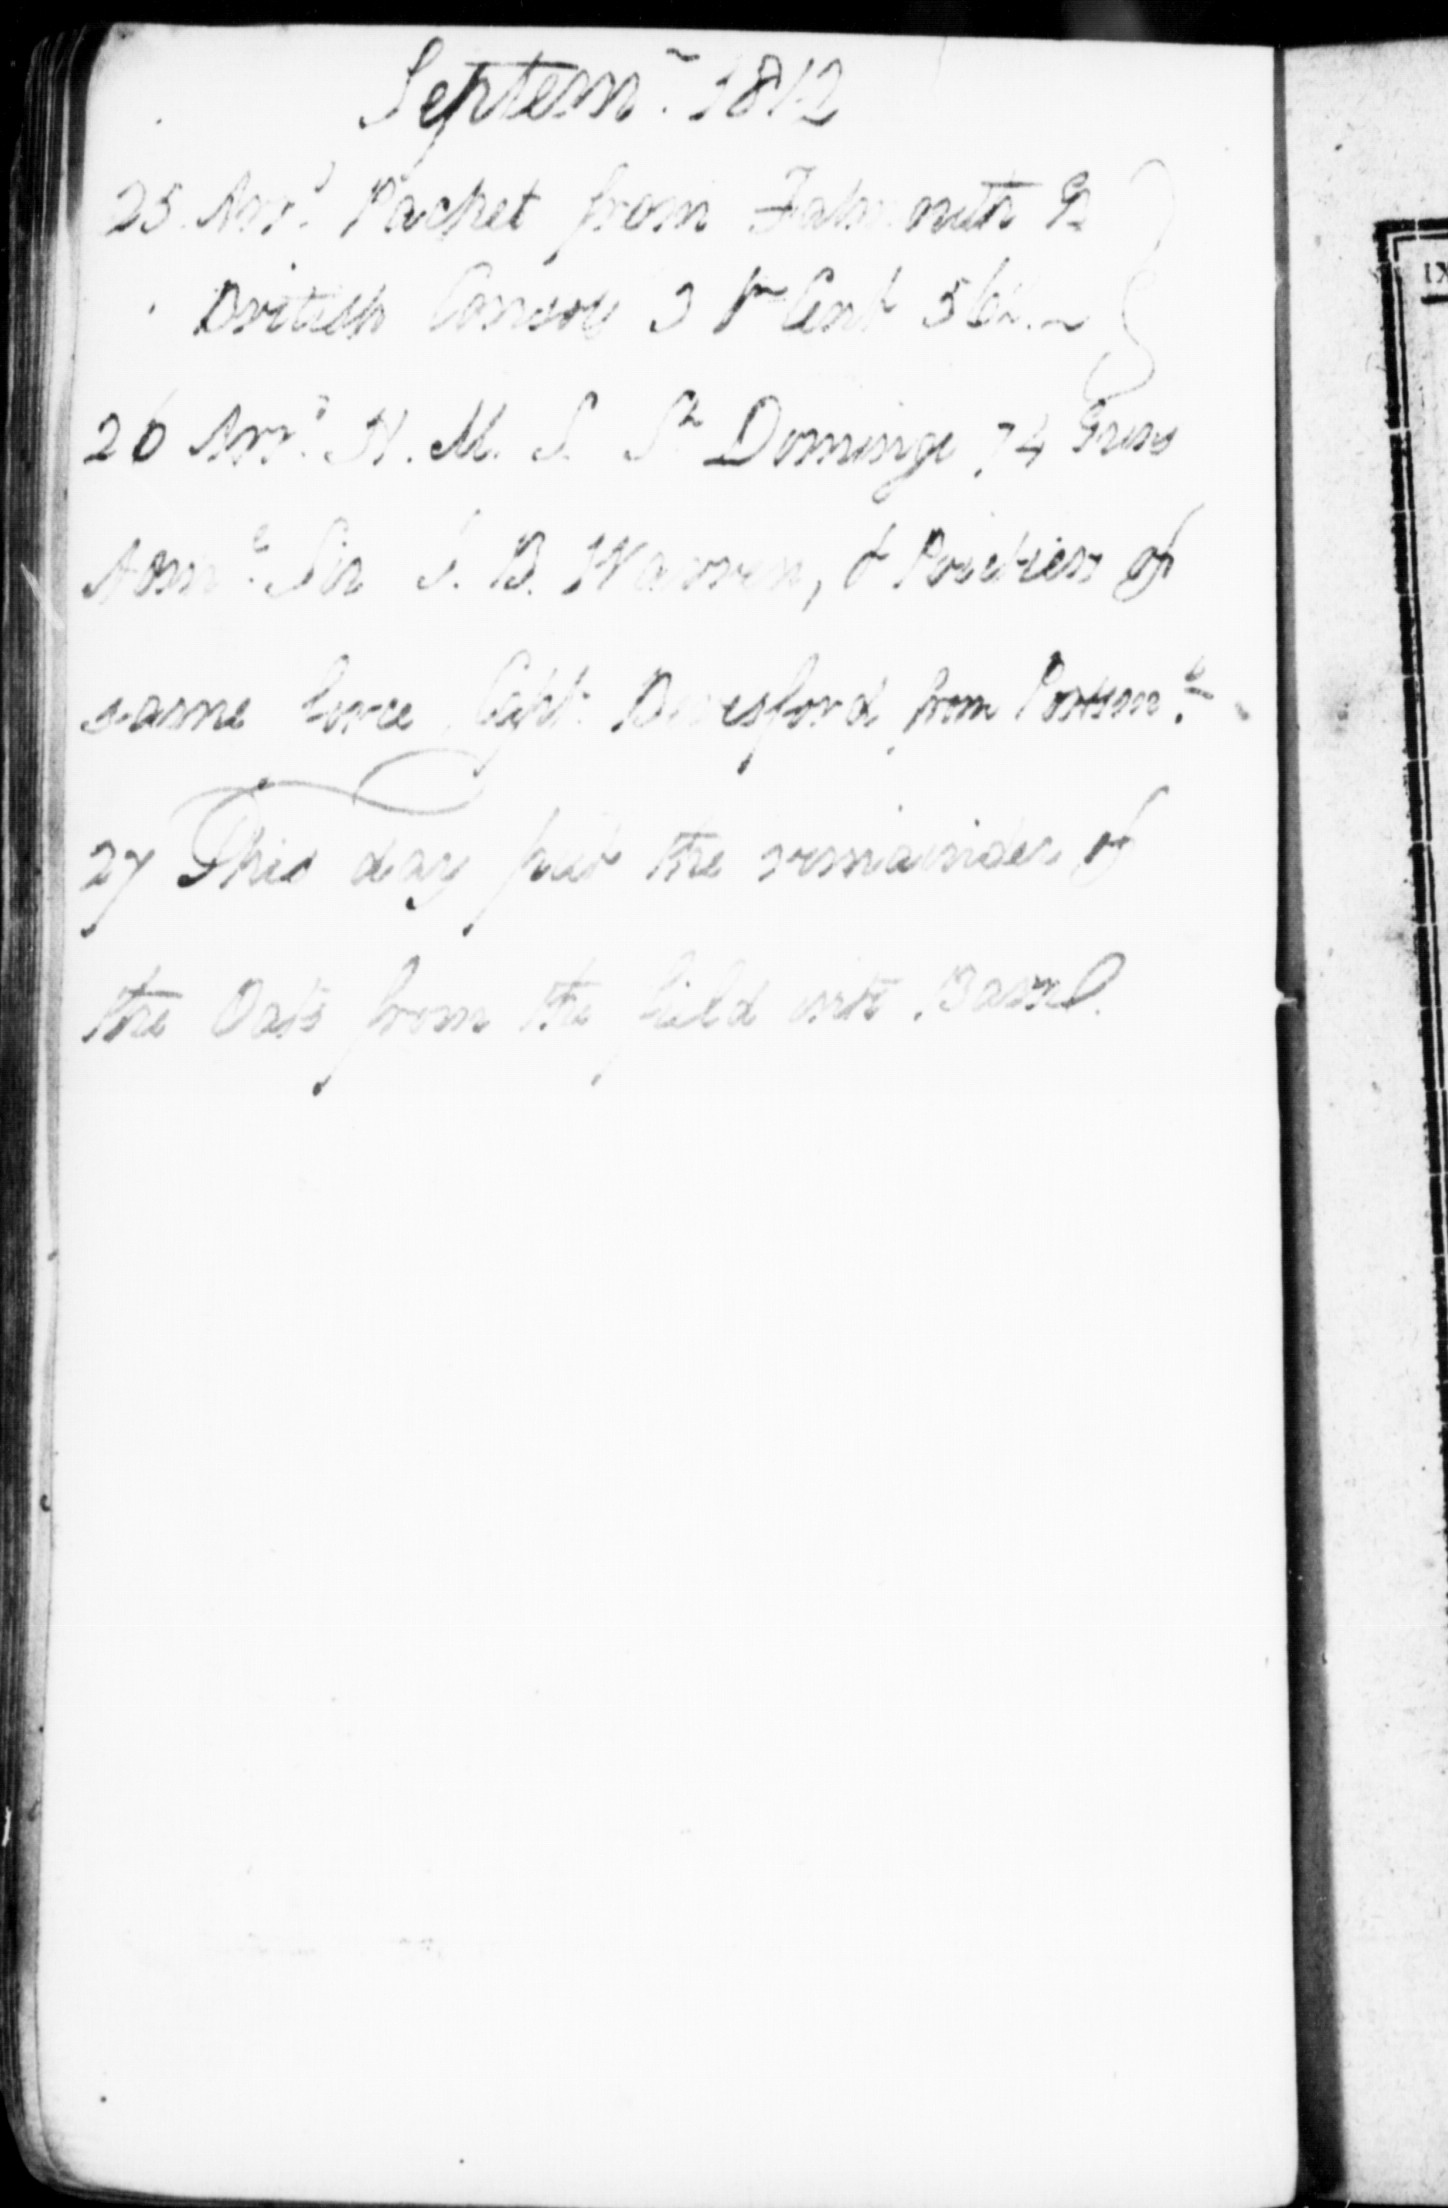 Septemr. 1812
25 Arrd. Packet from Falmouth G
British Consols 3 pr Cent 56
26 Arrd. H. M. S. St Domingo 74 Guns
Adml. Sir J. B. Warren, & Poictiers of
same force Capt. Beresford from Portsmo.
27 This day put the remainder of
the Oats from the field into Barn.
IX